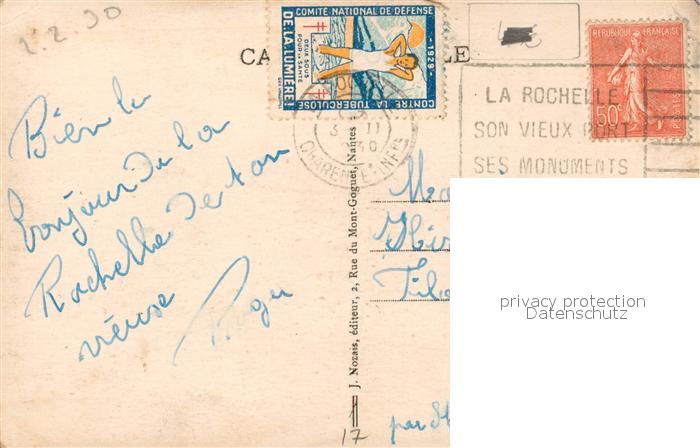 2.2.30
CA
LE
COMITÉ NATIONAL DE DÉFENSE
DE LA LUMIÈRE!
DEUX SOUS
POUR LA SANTÉ
1929
CONTRE LA TUBERCULOSE
RÉPUBLIQUE FRANÇAISE
50c
POSTES
LA ROCHELLE
SON VIEUX PORT
SES MONUMENTS
3 II
30
CHARENTE INFRE
Bien le
bonjour de la
Rochelle de ton
vieuse
Roger
J. Nozais, éditeur, 2, Rue du Mont-Goguet, Nantes
17
par St
privacy protection
Datenschutz